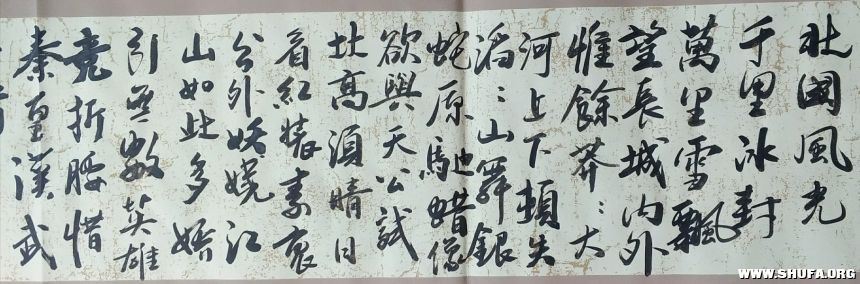 北國風光
千里冰封
萬里雪飄
望長城内外
惟餘莽〻大
河上下頓失
滔〻山舞銀
蛇原馳蜡像
欲與天公試
比高須晴日
看紅裝素裹
分外妖嬈江
山如此多嬌
引無數英雄
竞折腰惜
秦皇漢武
WWW.SHUFA.ORG